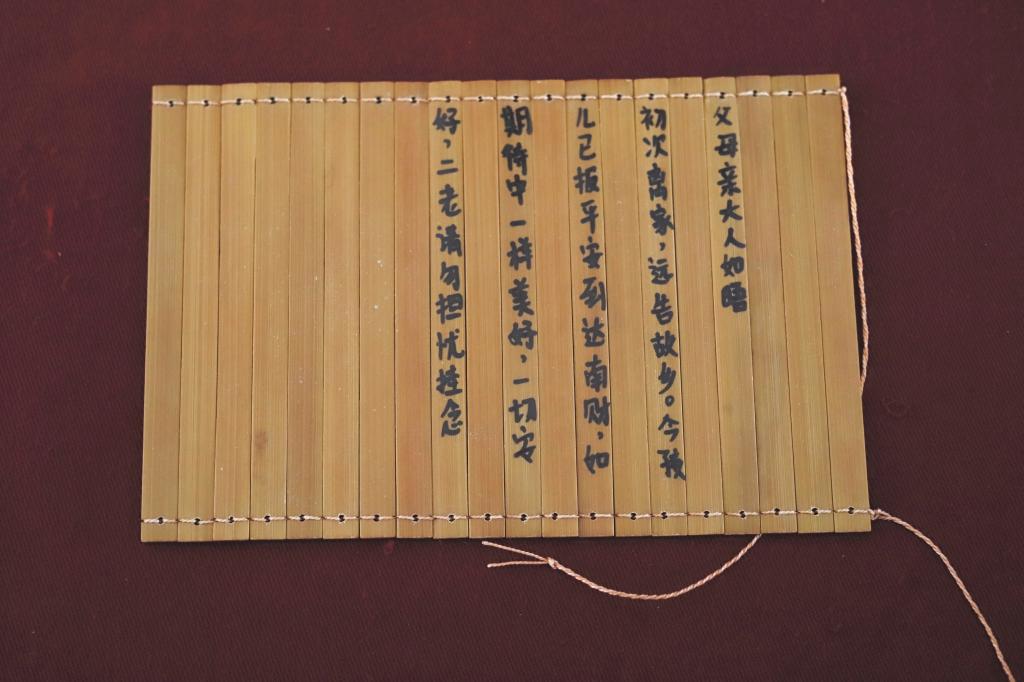 父母亲大人如晤
初次离家，远告故乡。今孩
儿已报平安到达南财，如
期待中一样美好，一切安
好，二老请勿担忧挂念